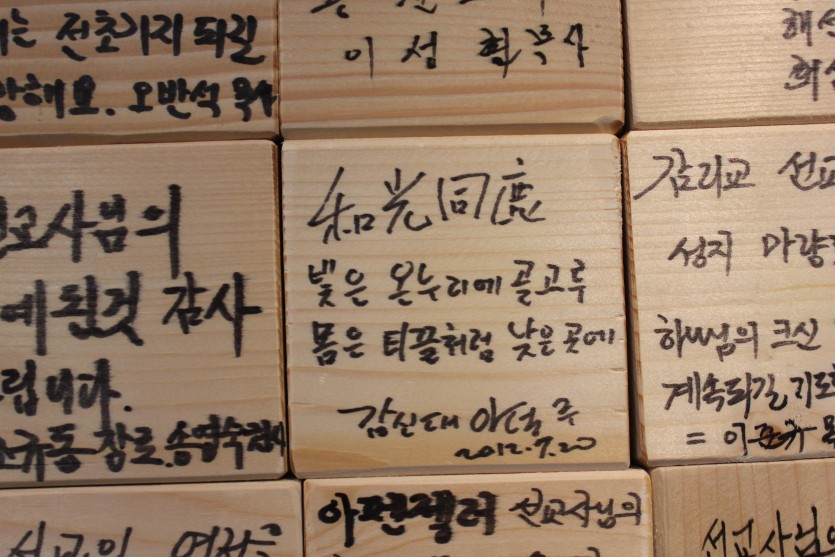 는 전초기지 되길
해요. 오반석 목사
이 성
교사님의
예 된것 감사
립니다.
규동 장로. 송명숙권사
和光同塵
빛은 온누리에 골고루
몸은 티끌처럼 낮은 곳에
감신대 아덕주
2012.7.20
감리교 선교
성지 마량
하나님의 크신
계속되길 기도
= 이
선교의
아펜젤러 선교사님의
선교사님